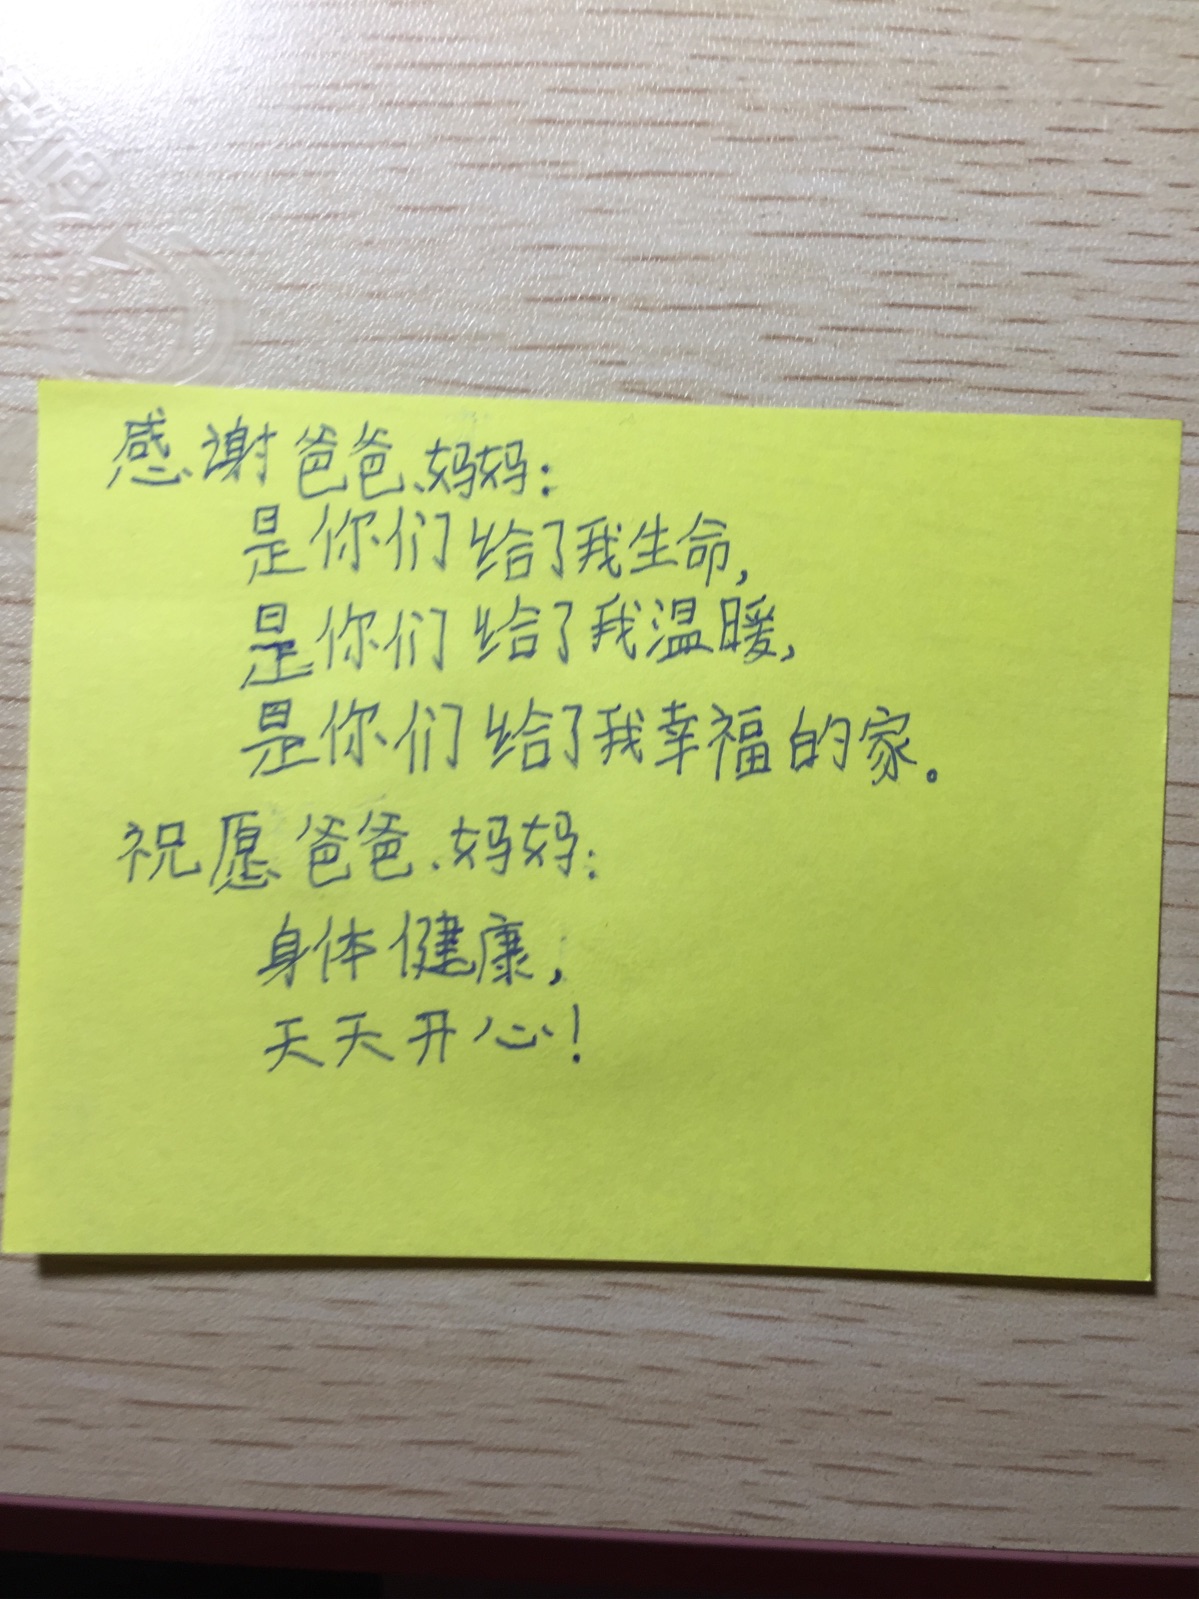 感谢爸爸、妈妈:
是你们给了我生命,
是你们给了我温暖,
是你们给了我幸福的家。
祝愿爸爸、妈妈:
身体健康,
天天开心!